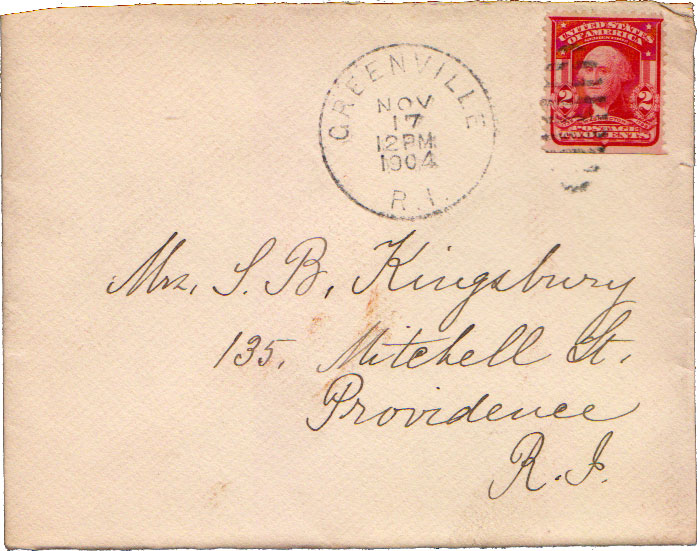 GREENVILLE
NOV
17
12PM
1904
R.I.
UNITED STATES
OF AMERICA
2 2
POSTAGE
TWO CENTS
Mrs. S. B. Kingsbury
135. Mitchell St.
Providence
R.I.